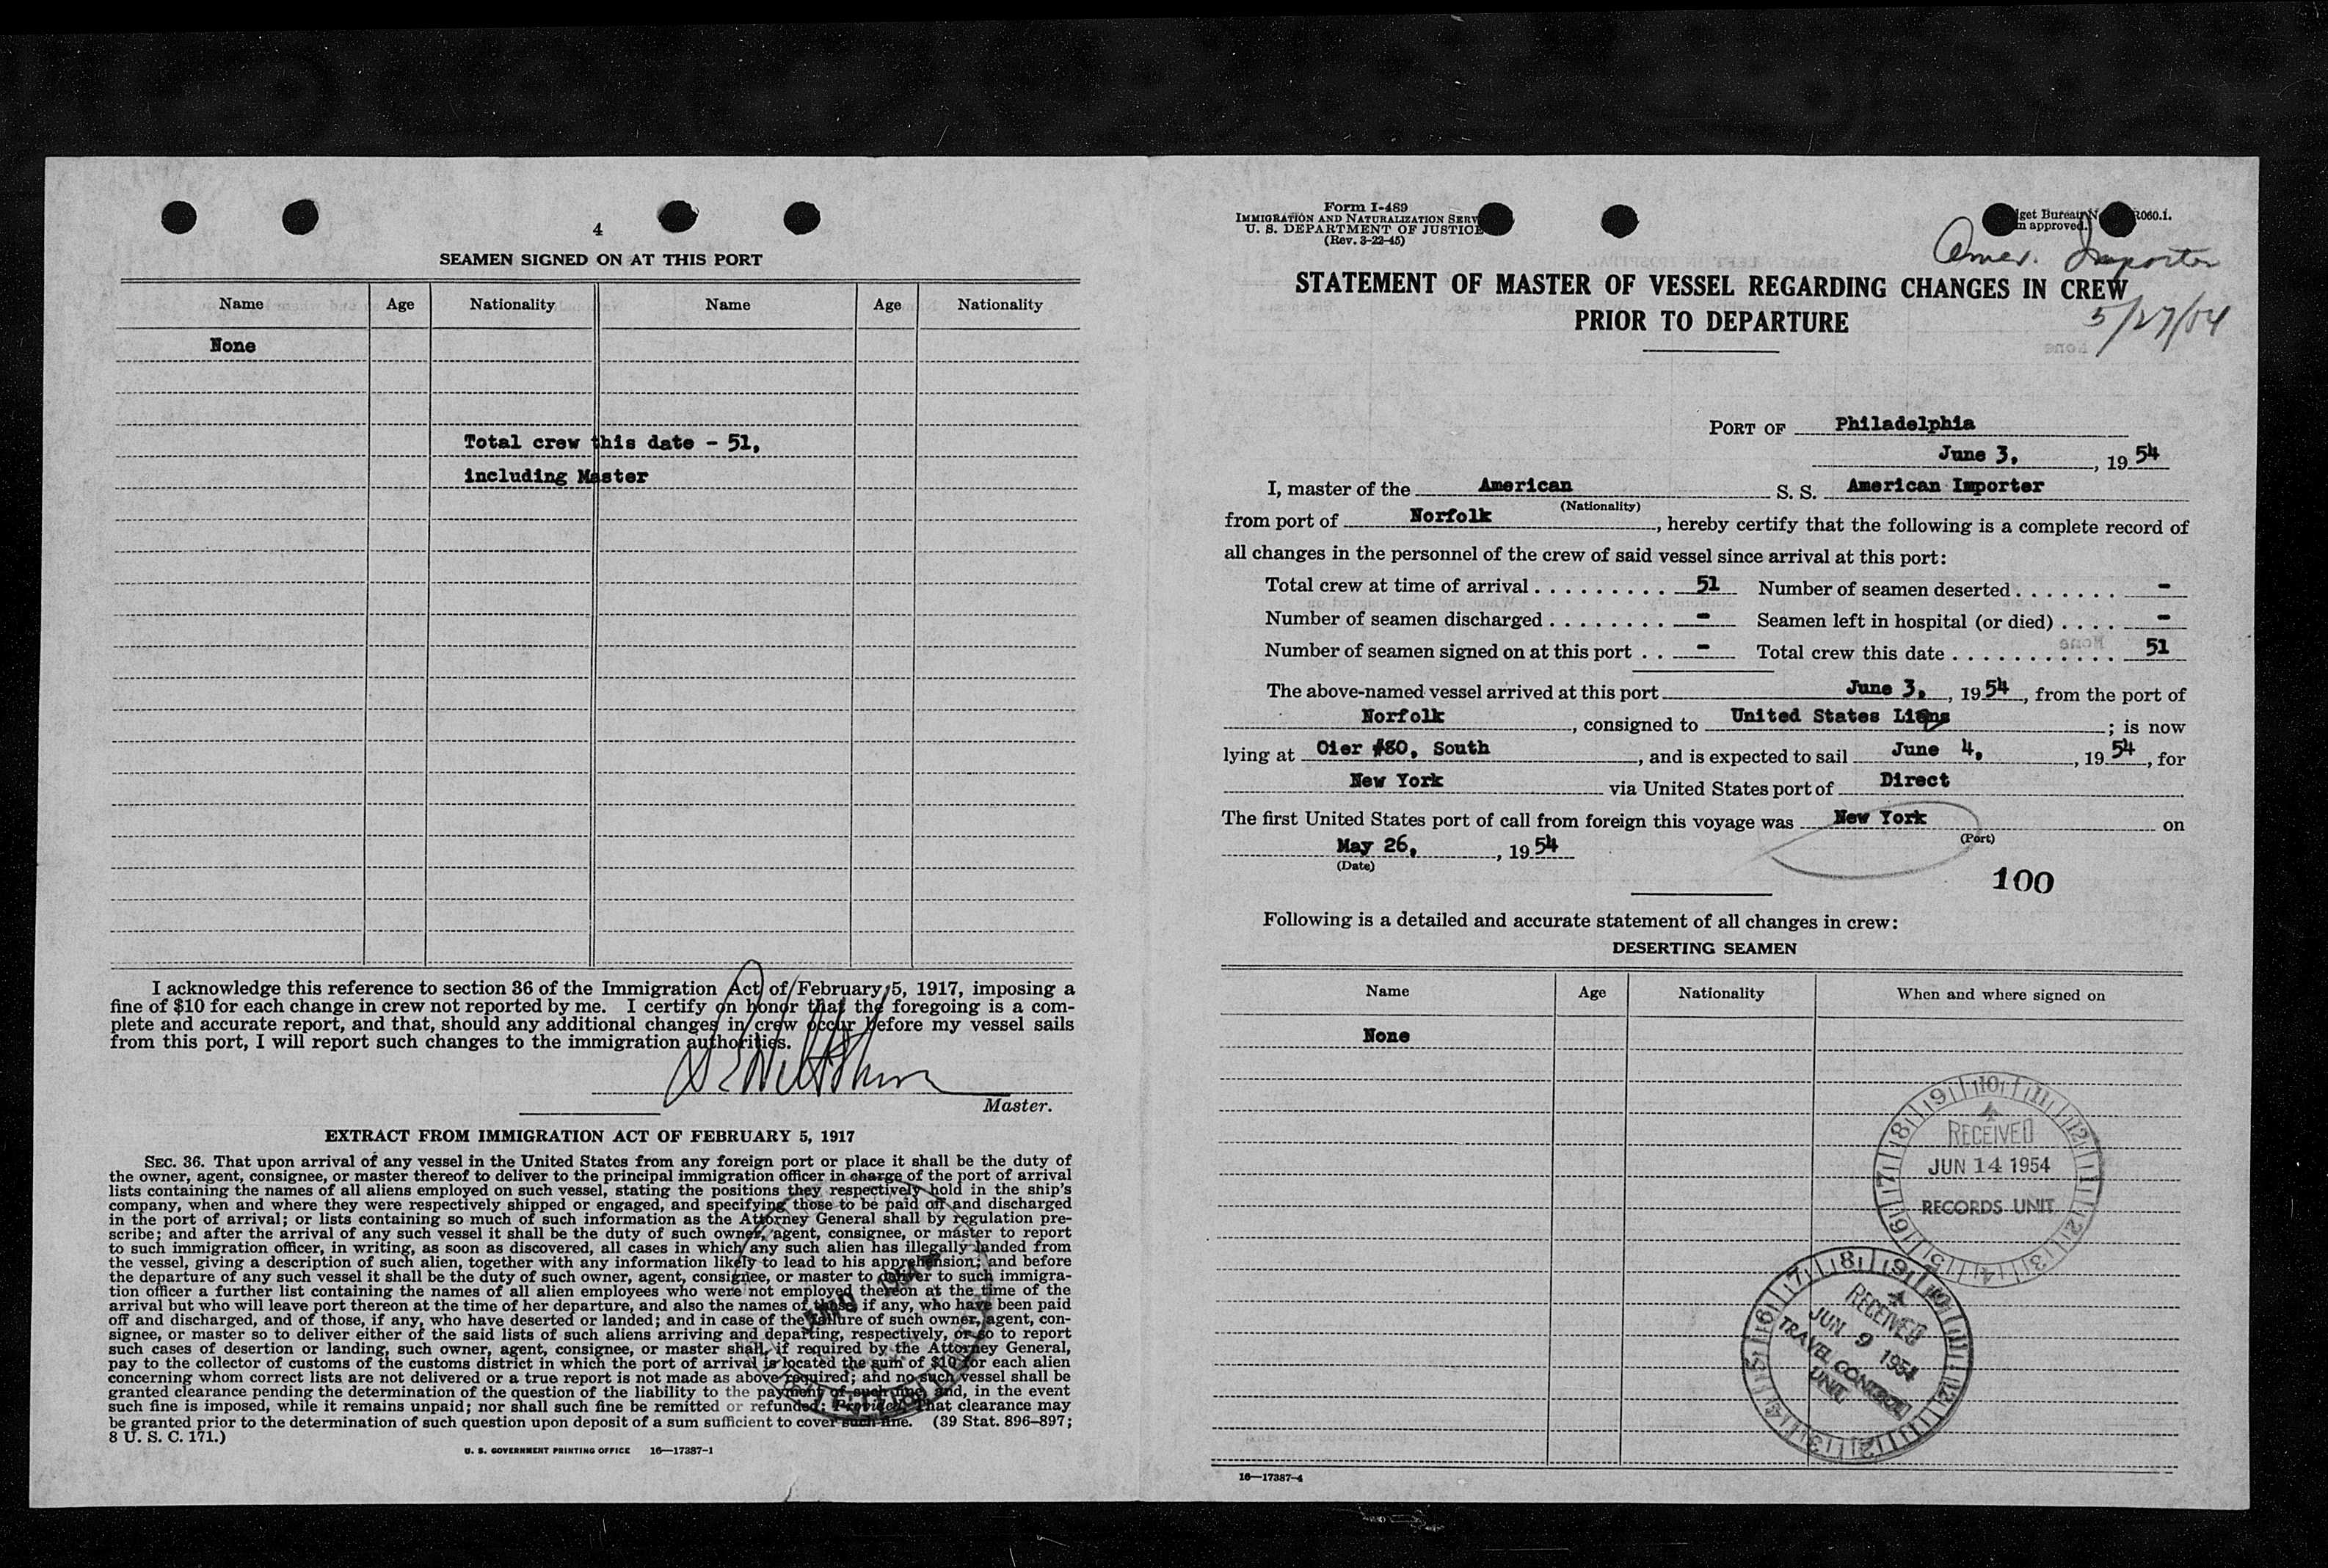 4
SEAMEN SIGNED ON AT THIS PORT
Name Age Nationality Name Age Nationality
None
Total crew this date - 51,
including Master
I acknowledge this reference to section 36 of the Immigration Act of February 5, 1917, imposing a
fine of $10 for each change in crew not reported by me. I certify on honor that the foregoing is a com-
plete and accurate report, and that, should any additional changes in crew occur before my vessel sails
from this port, I will report such changes to the immigration authorities.
Master.
EXTRACT FROM IMMIGRATION ACT OF FEBRUARY 5, 1917
SEC. 36. That upon arrival of any vessel in the United States from any foreign port or place it shall be the duty of
the owner, agent, consignee, or master thereof to deliver to the principal immigration officer in charge of the port of arrival
lists containing the names of all aliens employed on such vessel, stating the positions they respectively hold in the ship's
company, when and where they were respectively shipped or engaged, and specifying those to be paid off and discharged
in the port of arrival; or lists containing so much of such information as the Attorney General shall by regulation pre-
scribe; and after the arrival of any such vessel it shall be the duty of such owner, agent, consignee, or master to report
to such immigration officer, in writing, as soon as discovered, all cases in which any such alien has illegally landed from
the vessel, giving a description of such alien, together with any information likely to lead to his apprehension; and before
the departure of any such vessel it shall be the duty of such owner, agent, consignee, or master to deliver to such immigra-
tion officer a further list containing the names of all alien employees who were not employed thereon at the time of the
arrival but who will leave port thereon at the time of her departure, and also the names of those, if any, who have been paid
off and discharged, and of those, if any, who have deserted or landed; and in case of the failure of such owner, agent, con-
signee, or master so to deliver either of the said lists of such aliens arriving and departing, respectively, or so to report
such cases of desertion or landing, such owner, agent, consignee, or master shall, if required by the Attorney General,
pay to the collector of customs of the customs district in which the port of arrival is located the sum of $10 for each alien
concerning whom correct lists are not delivered or a true report is not made as above required; and no such vessel shall be
granted clearance pending the determination of the question of the liability to the payment of such fine, and, in the event
such fine is imposed, while it remains unpaid; nor shall such fine be remitted or refunded: Provided, That clearance may
be granted prior to the determination of such question upon deposit of a sum sufficient to cover such fine. (39 Stat. 896–897;
8 U. S. C. 171.)
U. S. GOVERNMENT PRINTING OFFICE 16—17387-1
Form I-489
IMMIGRATION AND NATURALIZATION SERV
U. S. DEPARTMENT OF JUSTICE
(Rev. 3-22-45)
get Bureau N R060.1.
n approved.
Amer. Importer
5/27/54
STATEMENT OF MASTER OF VESSEL REGARDING CHANGES IN CREW
PRIOR TO DEPARTURE
PORT OF Philadelphia
June 3, , 19 54
I, master of the American S. S. American Importer
(Nationality)
from port of Norfolk , hereby certify that the following is a complete record of
all changes in the personnel of the crew of said vessel since arrival at this port:
Total crew at time of arrival . . . . . . . . . 51 Number of seamen deserted . . . . . . . -
Number of seamen discharged . . . . . . . . - Seamen left in hospital (or died) . . . . -
Number of seamen signed on at this port . . - Total crew this date . . . . . . . . . . . 51
The above-named vessel arrived at this port June 3, , 19 54 , from the port of
Norfolk , consigned to United States Liens ; is now
lying at Oier #80, South , and is expected to sail June 4, , 19 54 , for
New York via United States port of Direct
The first United States port of call from foreign this voyage was New York on
(Port)
May 26, , 19 54
(Date)
100
Following is a detailed and accurate statement of all changes in crew:
DESERTING SEAMEN
Name Age Nationality When and where signed on
None
RECEIVED
JUN 14 1954
RECORDS UNIT
RECEIVED
JUN 9 1954
TRAVEL CONTROL
UNIT
16—17387-4